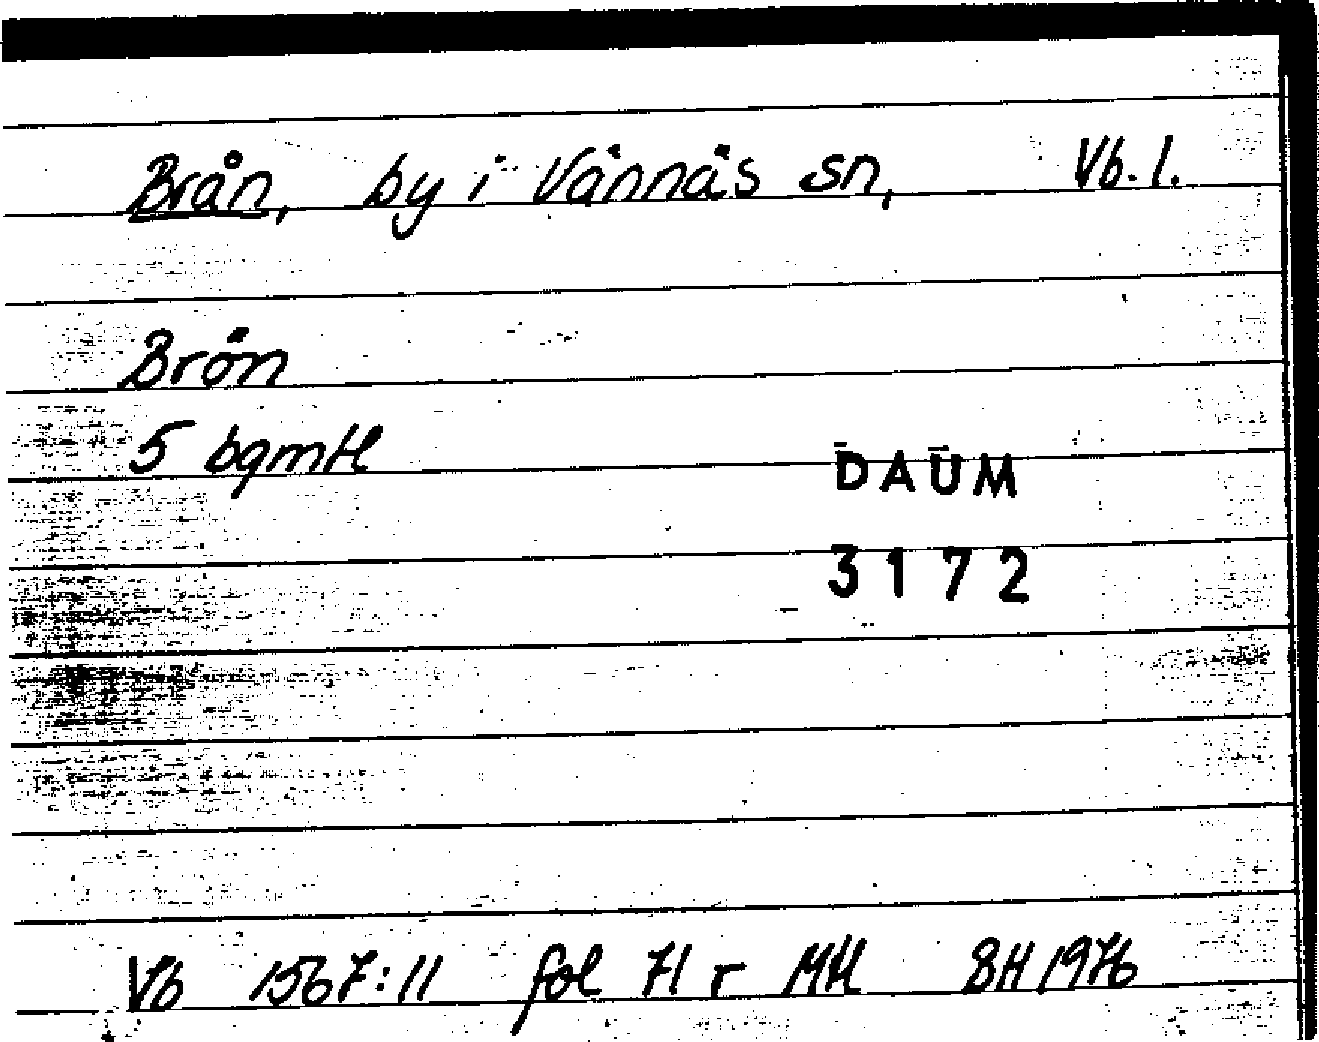 Brån, by i Vännäs sn, Vb. l.
Brön
5 bgmtl
DAUM
3172
Vb 1567:11 fol 71 r MH BH 1976